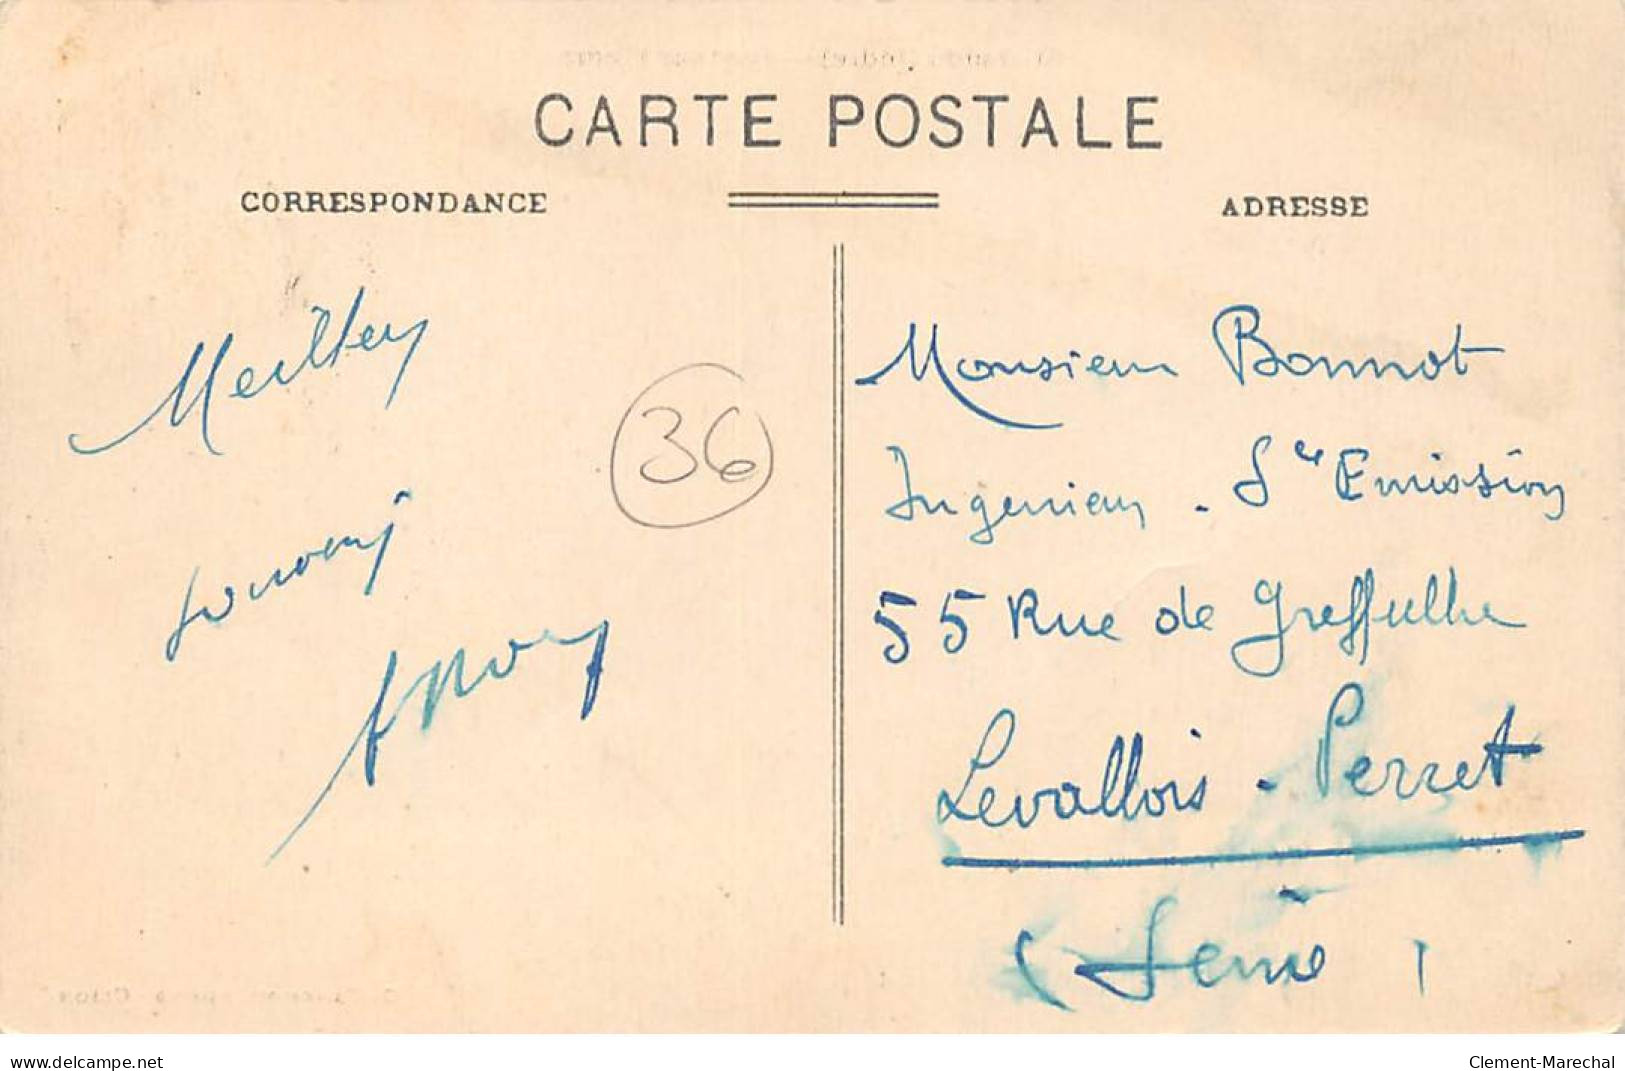 CARTE POSTALE
CORRESPONDANCE
ADRESSE
Meilleurs
souvenirs
36
Monsieur Bonnot
Ingenieur - Sce Emission
55 Rue de Greffulhe
Levallois - Perret
(Seine)
www.delcampe.net
Clement-Marechal